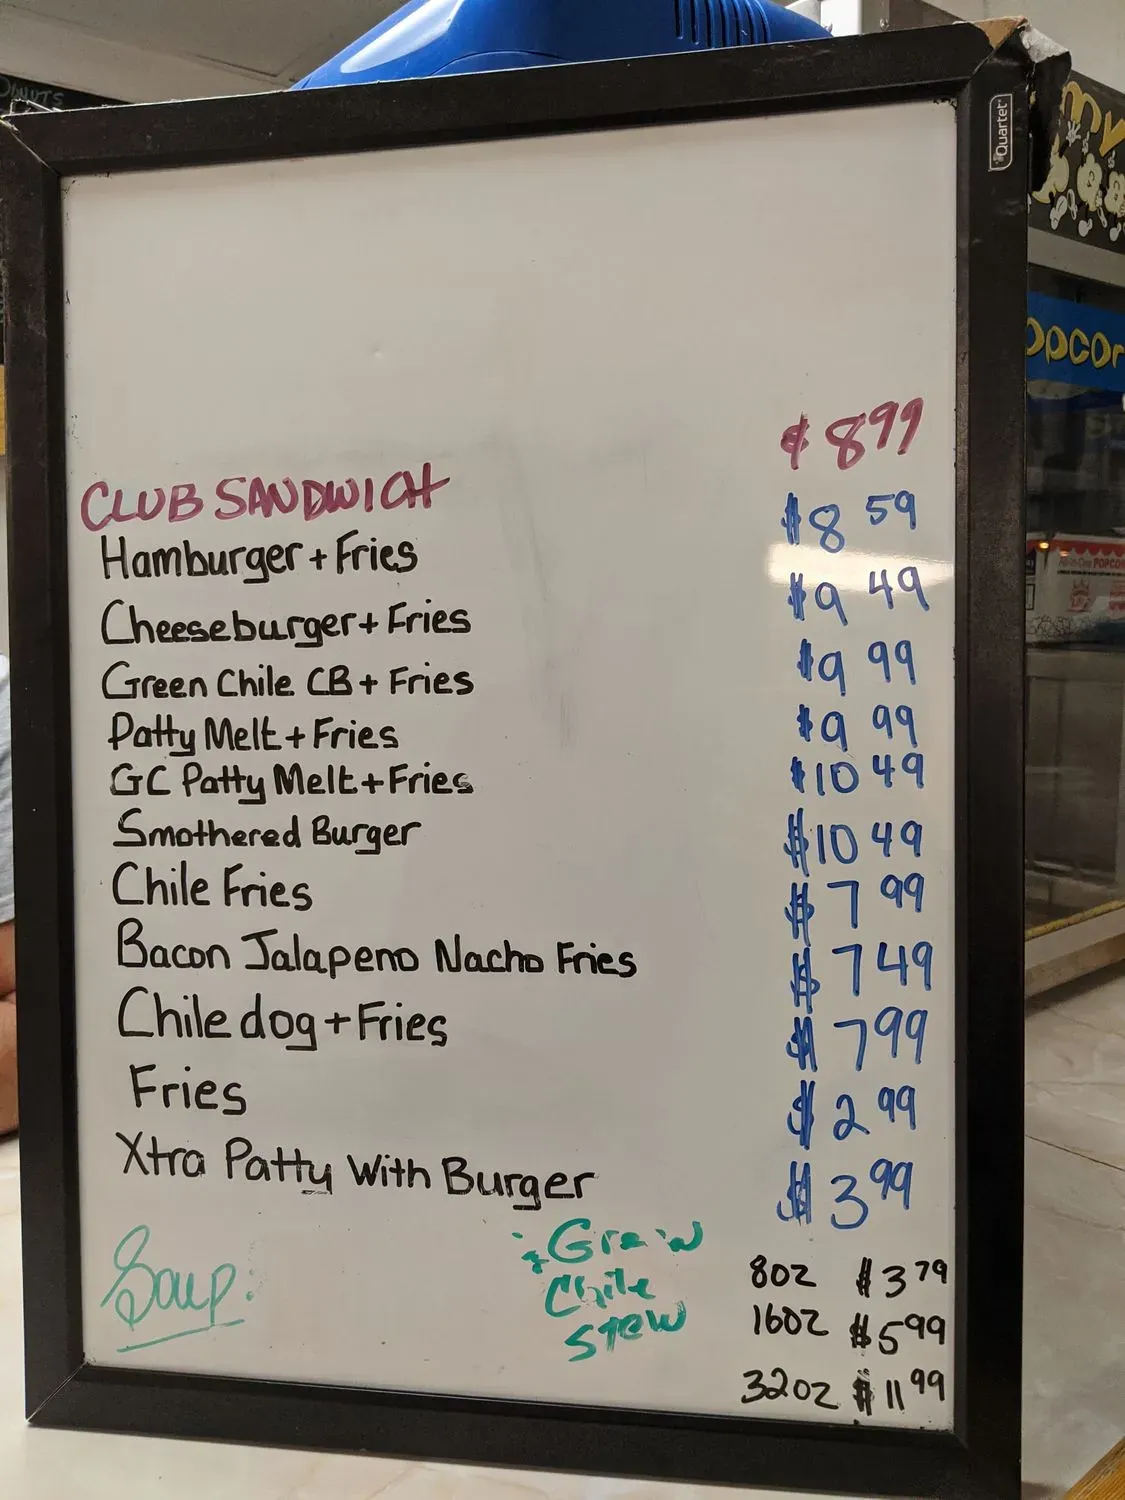 DONUTS
Quartet
my
opcor
POPCO
CLUB SANDWICH $8 99
Hamburger + Fries $8 59
Cheeseburger + Fries $9 49
Green Chile CB + Fries $9 99
Patty Melt + Fries $9 99
GC Patty Melt + Fries $10 49
Smothered Burger $10 49
Chile Fries $7 99
Bacon Jalapeno Nacho Fries $7 49
Chile dog + Fries $7 99
Fries $2 99
Xtra Patty With Burger $3 99
Soup:
Green
Chile
Stew
8oz $3 79
16oz $5 99
32oz $11 99